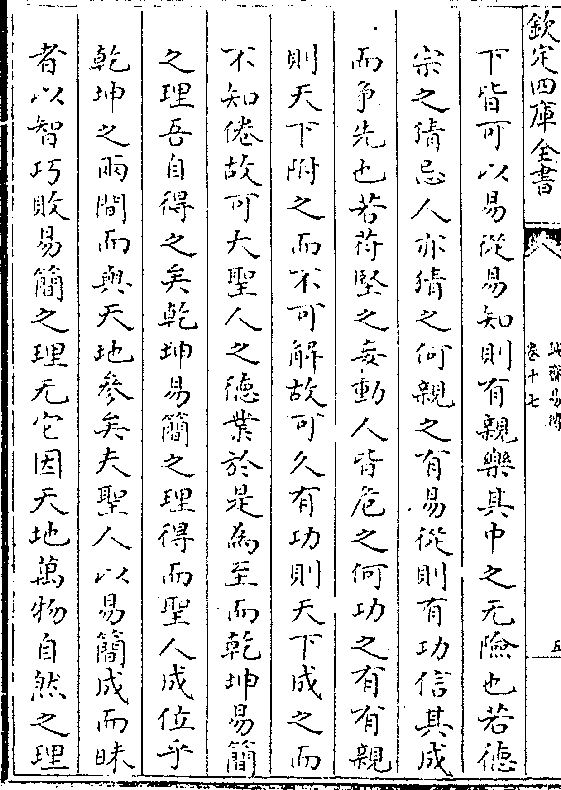 欽定四庫全書
誠齋易傳
卷十七
五
下皆可以易從易知則有親樂其中之无險也若德
宗之猜忌人亦猜之何親之有易從則有功信其成
而爭先也若苻堅之妄動人皆危之何功之有有親
則天下附之而不可解故可久有功則天下成之而
不知倦故可大聖人之德業於是為至而乾坤易簡
之理吾自得之矣乾坤易簡之理得而聖人成位乎
乾坤之兩間而與天地參矣夫聖人以易簡成而昧
者以智巧敗易簡之理无它因天地萬物自然之理